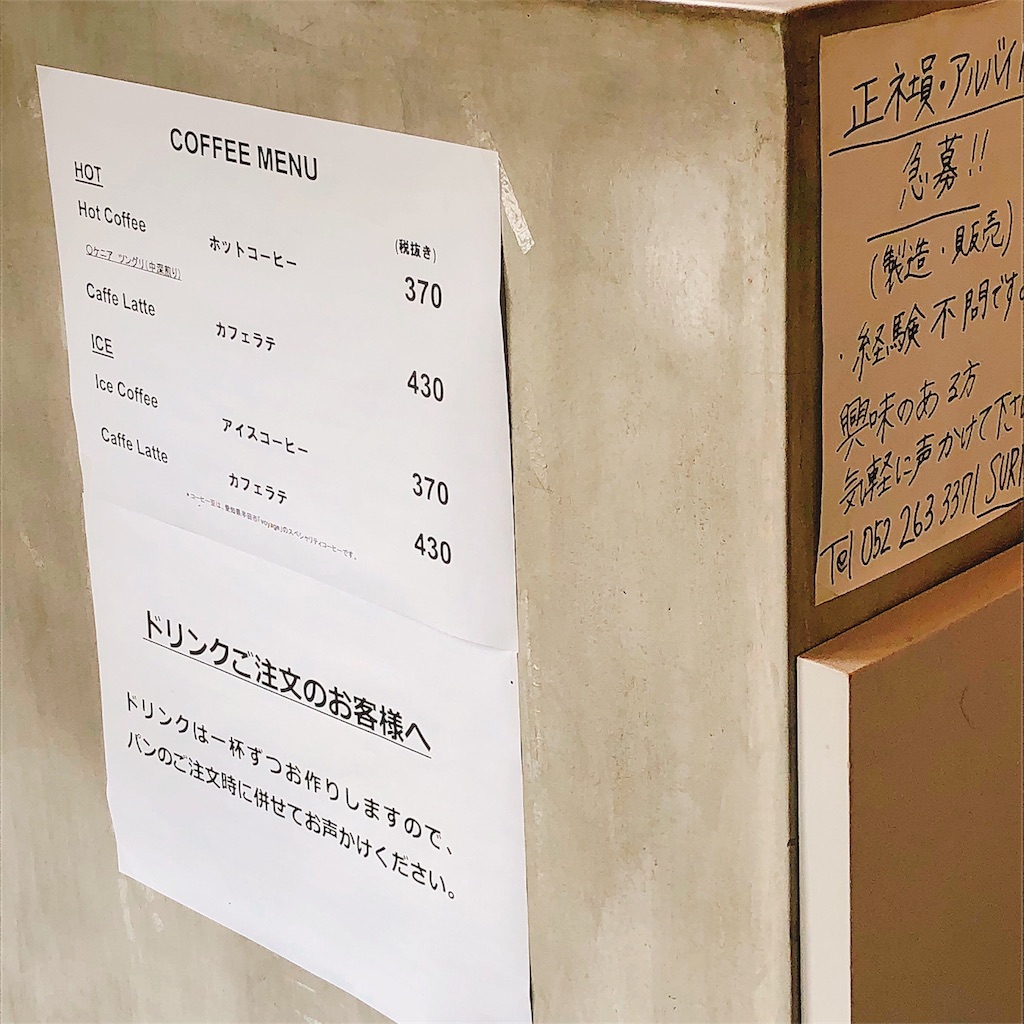 COFFEE MENU
HOT
(税抜き)
Hot Coffee ホットコーヒー 370
〇ケニア ツングリ(中深煎り)
Caffe Latte カフェラテ 430
ICE
Ice Coffee アイスコーヒー 370
Caffe Latte カフェラテ 430
*コーヒー豆は、愛知県半田市「voyage」のスペシャリティコーヒーです。
ドリンクご注文のお客様へ
ドリンクは一杯ずつお作りしますので、
パンのご注文時に併せてお声かけください。
正社員・アルバイ
急募!!
(製造・販売)
・経験不問です
興味のある方
気軽に声かけて下さ
Tel 052 263 3371 SUR